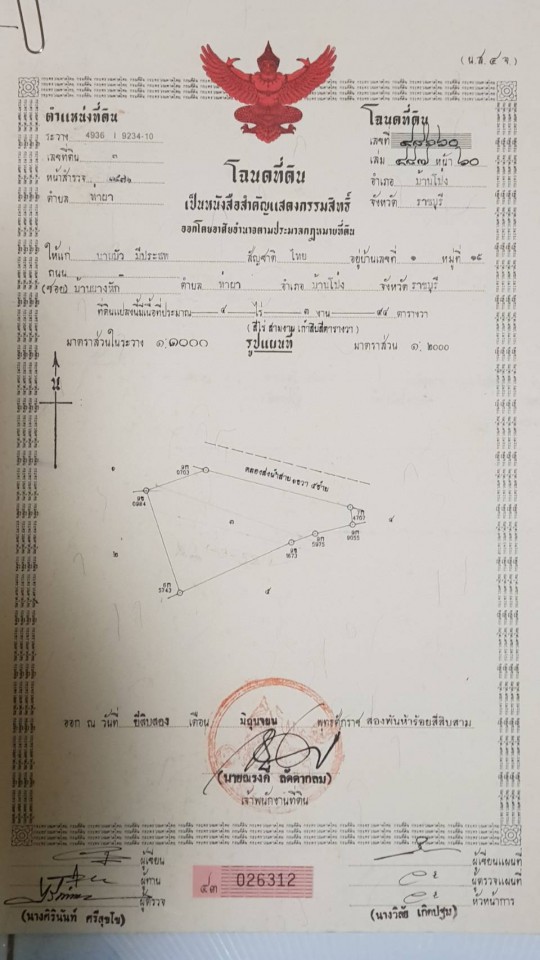 (น.ส. ๔ จ.)
ตำแหน่งที่ดิน
ระวาง 4936 I 9234-10
เลขที่ดิน ๓
หน้าสำรวจ
ตำบล ท่าผา
โฉนดที่ดิน
เลขที่
เล่ม ๔๘๗ หน้า ๖๐
อำเภอ บ้านโป่ง
จังหวัด ราชบุรี
โฉนดที่ดิน
เป็นหนังสือสำคัญแสดงกรรมสิทธิ์
ออกโดยอาศัยอำนาจตามประมวลกฎหมายที่ดิน
ให้แก่ สัญชาติ ไทย อยู่บ้านเลขที่ ๑ หมู่ที่ ๑๕
ถนน
(ซอย) ตำบล ท่าผา อำเภอ บ้านโป่ง จังหวัด ราชบุรี
ที่ดินแปลงนี้มีเนื้อที่ประมาณ ๔ ไร่ ๓ งาน ๙๔ ตารางวา
(สี่ไร่ สามงาน เก้าสิบสี่ตารางวา)
มาตราส่วนในระวาง ๑:๑๐๐๐
รูปแผนที่
มาตราส่วน ๑: ๒๐๐๐
น
คลองส่งน้ำสาย ๑ขวา ๕ซ้าย
๑
๒
๓
๔
๕
4767
9055
5975
5743
6984
ออก ณ วันที่ ยี่สิบสอง เดือน มิถุนายน พุทธศักราช สองพันห้าร้อยสี่สิบสาม
(นายณรงค์ ลัดดากลม)
เจ้าพนักงานที่ดิน
ผู้เขียน
ผู้ทาน
ผู้ตรวจ
(นางศิรินันท์ ศรีสุขใข)
๔๓ 026312
ผู้เขียนแผนที่
ผู้ตรวจแผนที่
หัวหน้าการ
(นางวิลัย เกิดปฐม)